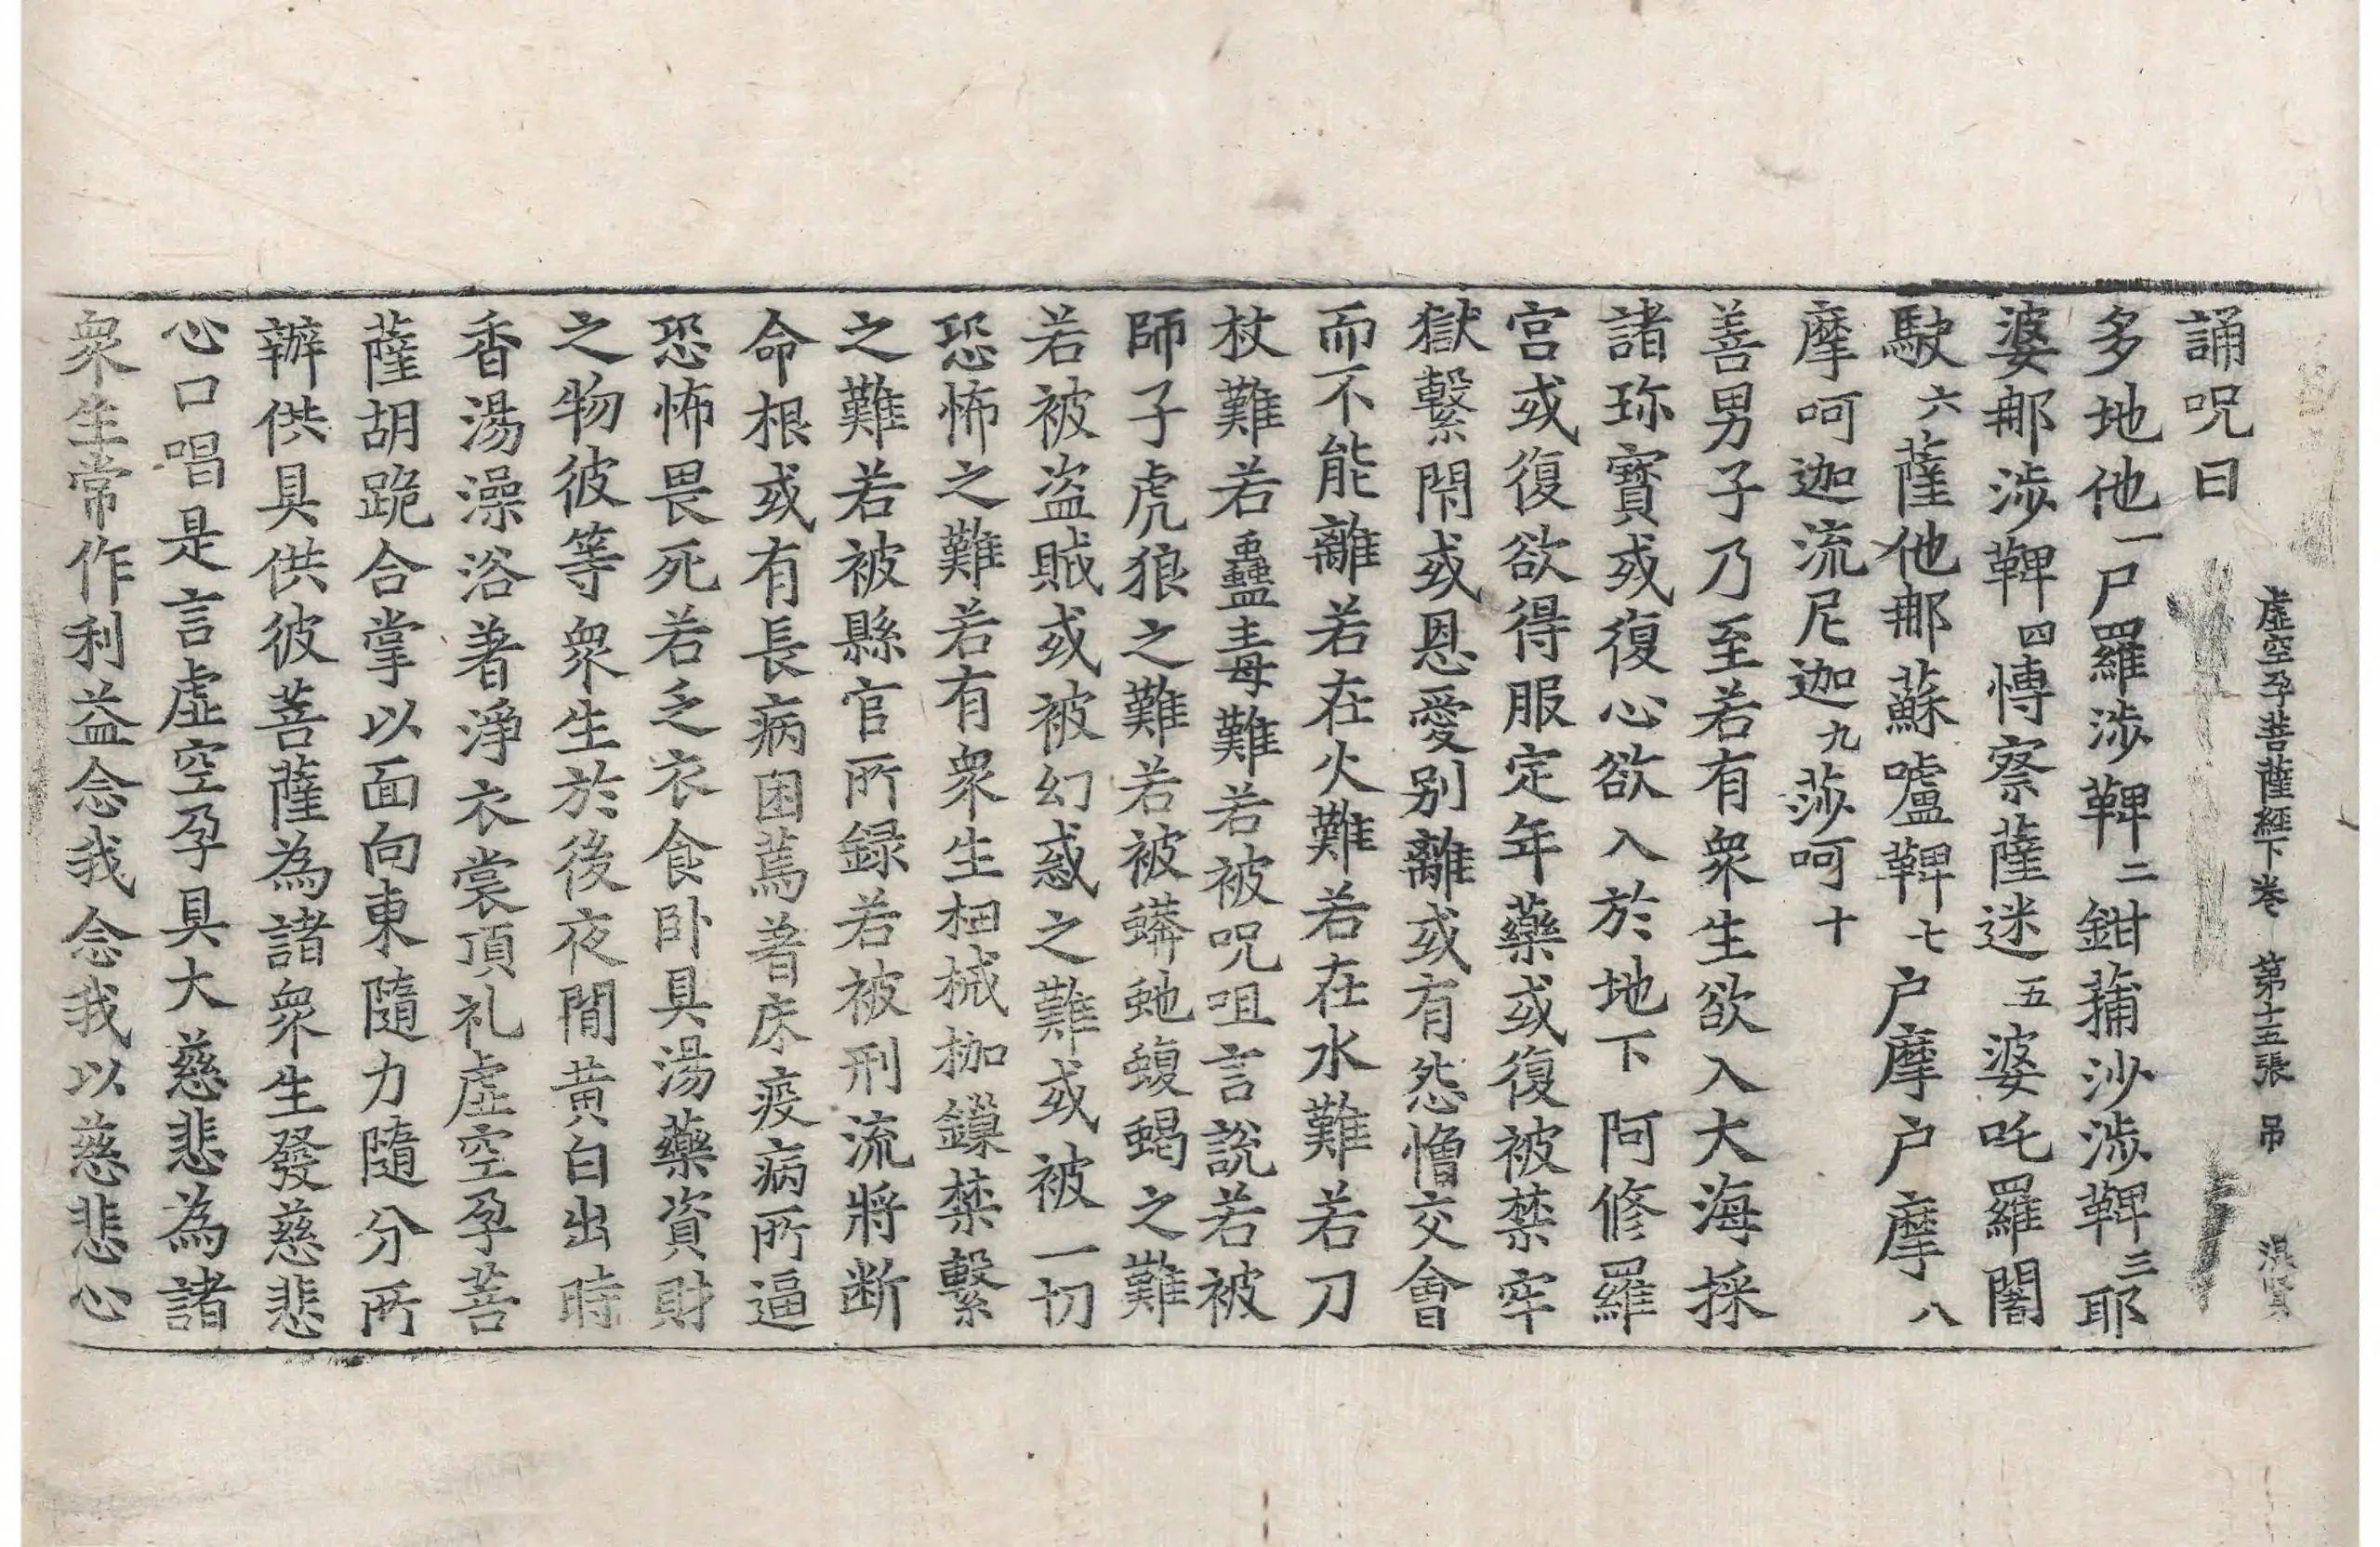 虛空孕菩薩經下卷 第十五張 吊
誦呪曰
多地他一尸羅涉鞞二鉗蒱沙涉鞞三耶
婆那涉鞞四慱察薩迷五婆吒羅闍
駛六薩他那蘇嚧鞞七户摩户摩八
摩呵迦流尼迦九莎呵十
善男子乃至若有衆生欲入大海採
諸珎寳或復心欲入於地下阿修羅
宫或復欲得服定年藥或復被禁牢
獄繫閇或恩愛别離或有怨憎交會
而不能離若在火難若在水難若刀
杖難若蠱毒難若被呪咀言說若被
師子虎狼之難若被蟒虵蝮蝎之難
若被盗賊或被幻惑之難或被一切
恐怖之難若有衆生杻械枷鏁禁繫
之難若被縣官所録若被刑流將断
命根或有長病困蔫著床疫病所逼
恐怖畏死若乏衣食卧具湯藥資財
之物彼等衆生於後夜閒黄白出時
香湯澡浴著淨衣裳頂礼虛空孕菩
薩胡跪合掌以面向東隨力隨分所
辦供具供彼菩薩為諸衆生發慈悲
心口唱是言虛空孕具大慈悲為諸
衆生常作利益念我念我以慈悲心